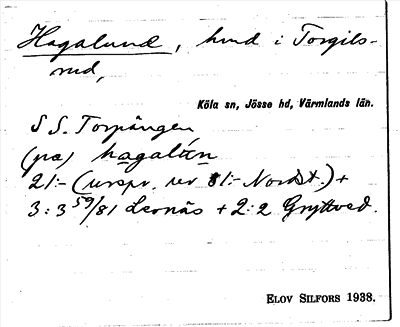 Hagalund, hmd i Torgils-
rud,
Köla sn, Jösse hd, Värmlands län.
SS. Torpängen
(på) hagalún
21:- (urspr. rev 81:- Nordst.) +
3:3 59/81 Leonäs + 2:2 Gryttved.
ELOV SILFORS 1938.